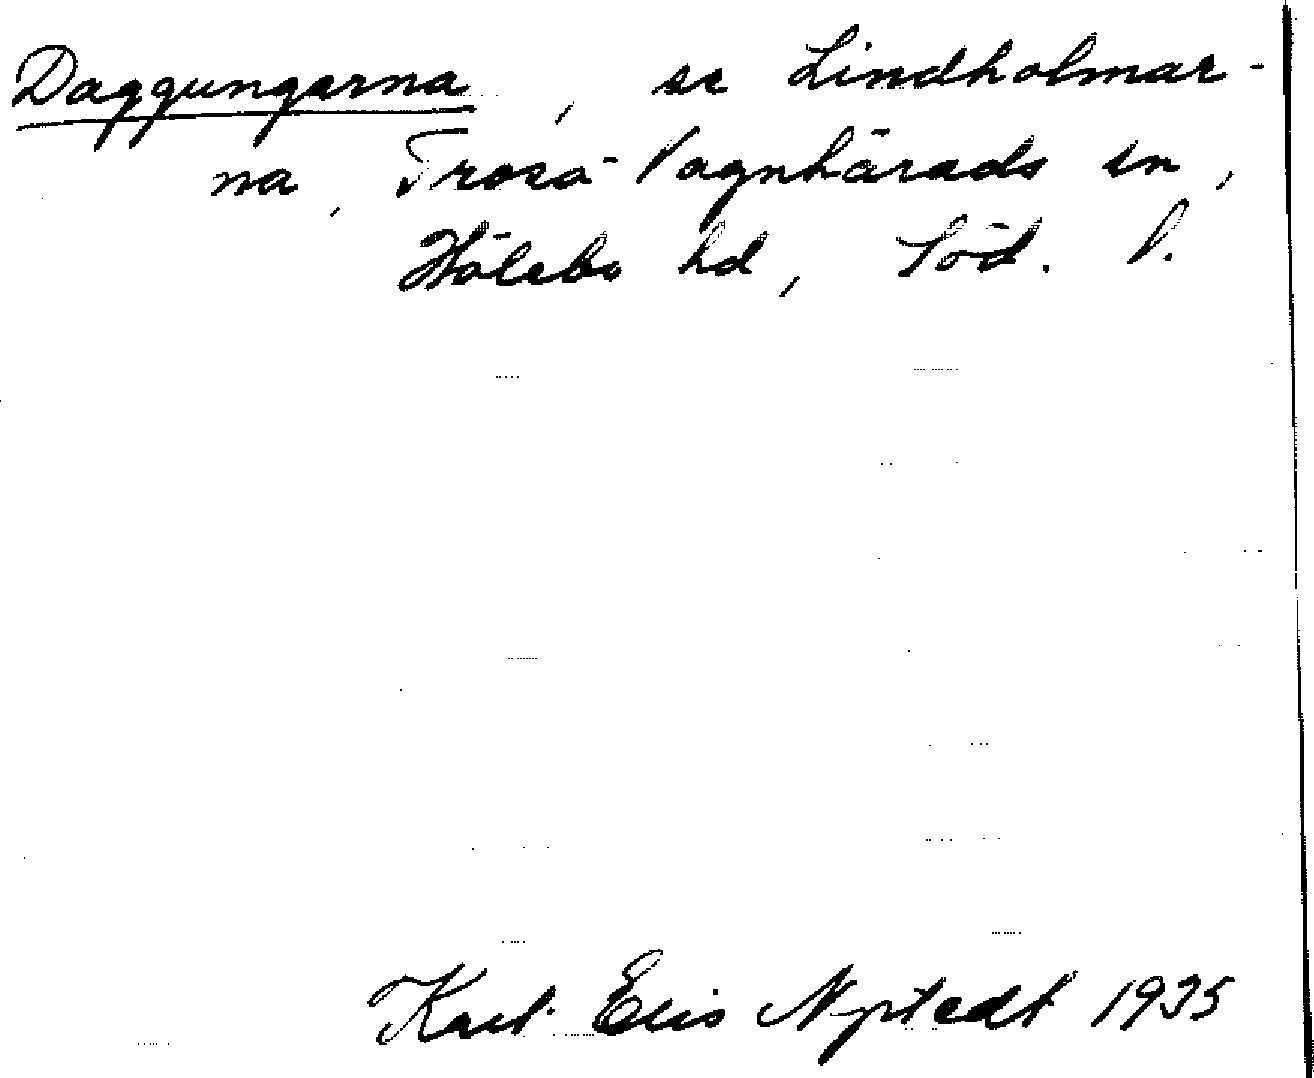 Daggungarna, se Lindholmar-
na, Trosa-Vagnhärads sn,
Hölebo hd, Söd. l.
Karl Elis Nystedt 1935